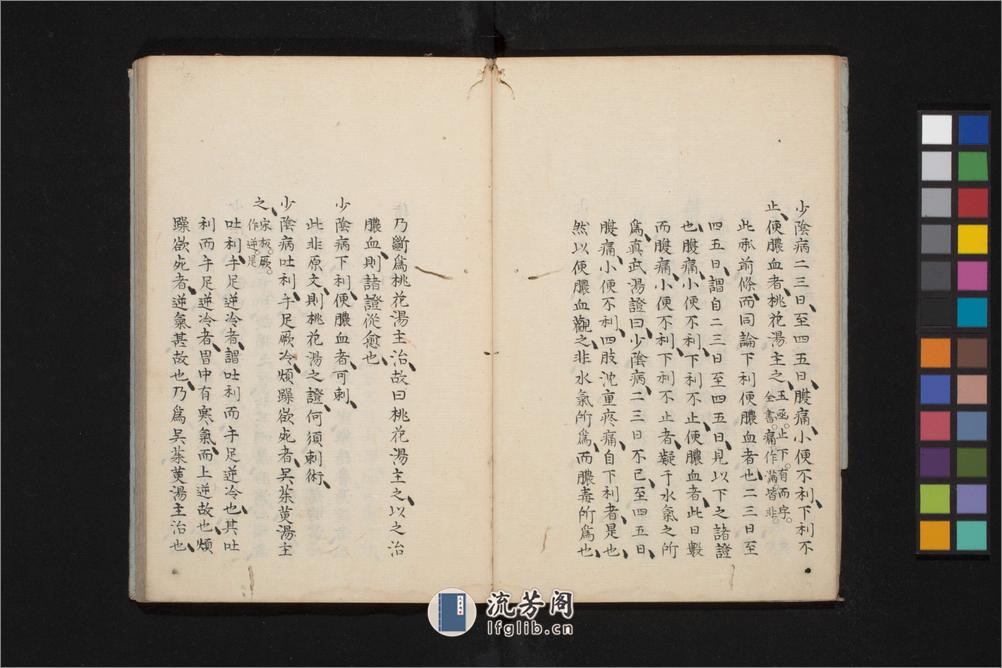 少陰病二三日至四五日腹痛小便不利下利不
止便膿血者桃花湯主之玉函。止下。有而字。全書。痛作滿皆非。
此承前條而同論下利便膿血者也二三日至
四五日謂自二三日至四五日見以下之諸證
也腹痛小便不利下利不止便膿血者此日數
而腹痛小便不利下利不止者疑于水氣之所
爲真武湯證曰少陰病二三日不已至四五日
腹痛小便不利四肢沈重疼痛自下利者是也
然以便膿血觀之非水氣所爲而膿毒所爲也
乃斷爲桃花湯主治故曰桃花湯主之以之治
膿血則諸證從愈也
少陰病下利便膿血者可刺
此非原文則桃花湯之證何須刺術
少陰病吐利手足厥冷煩躁欲死者吳茱萸湯主
之宋板。厥。作逆是
吐利手足逆冷者謂吐利而手足逆冷也其吐
利而手足逆冷者胃中有寒氣而上逆故也煩
躁欲死者逆氣甚故也乃爲吳茱萸湯主治也
流芳阁
lfglib.cn